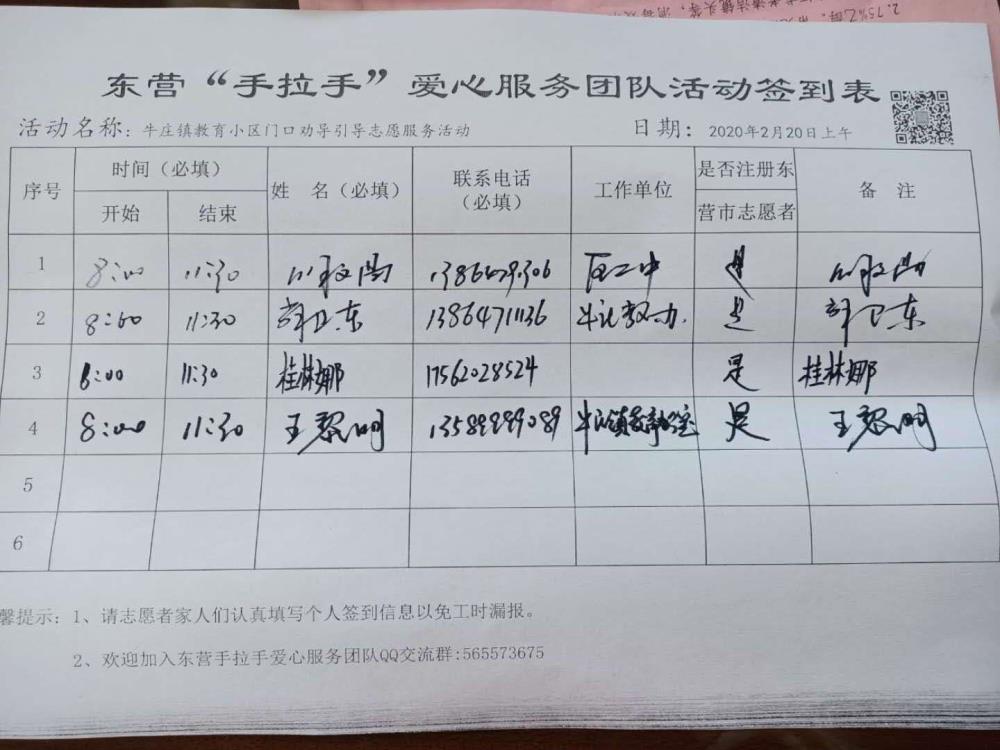 2.75%乙醇
东营“手拉手”爱心服务团队活动签到表
活动名称: 牛庄镇教育小区门口劝导引导志愿服务活动 日期: 2020年2月20日上午
序号 时间（必填） 姓 名（必填） 联系电话（必填） 工作单位 是否注册东营市志愿者 备 注
开始 结束
1 8:00 11:30 是
2 8:00 11:30 13864711136 是
3 8:00 11:30 桂林娜 17562028524 是 桂林娜
4 8:00 11:30 王黎明 13589999089 是 王黎明
5
6
馨提示: 1、请志愿者家人们认真填写个人签到信息以免工时漏报。
2、欢迎加入东营手拉手爱心服务团队QQ交流群:565573675